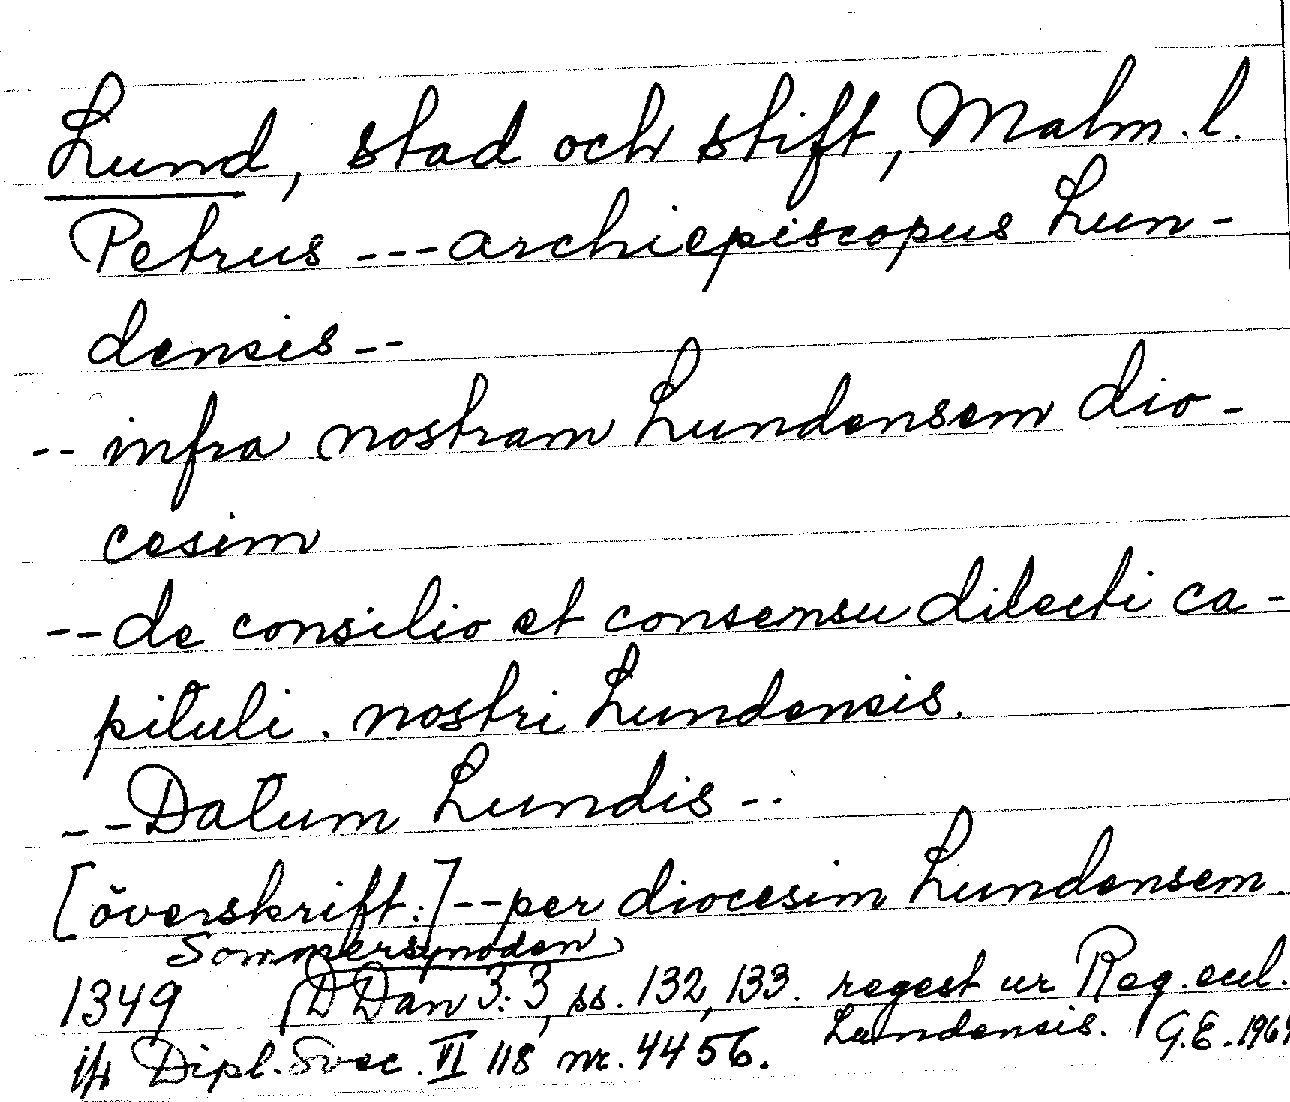 Lund, stad och stift, Malm. l.
Petrus --- archiepiscopus Lun-
densis --
-- infra nostram Lundensem dio-
cesim
-- de consilio et consensu dilecti ca-
pituli. nostri Lundensis.
-- Datum Lundis --
[överskrift:] -- per diocesim Lundensem
Sommersynoden
1349 DDan 3:3, ss. 132, 133. regest ur Reg. eccl.
Lundensis. G.E. 1969
Dipl. Svec. VI 118 nr. 4456.